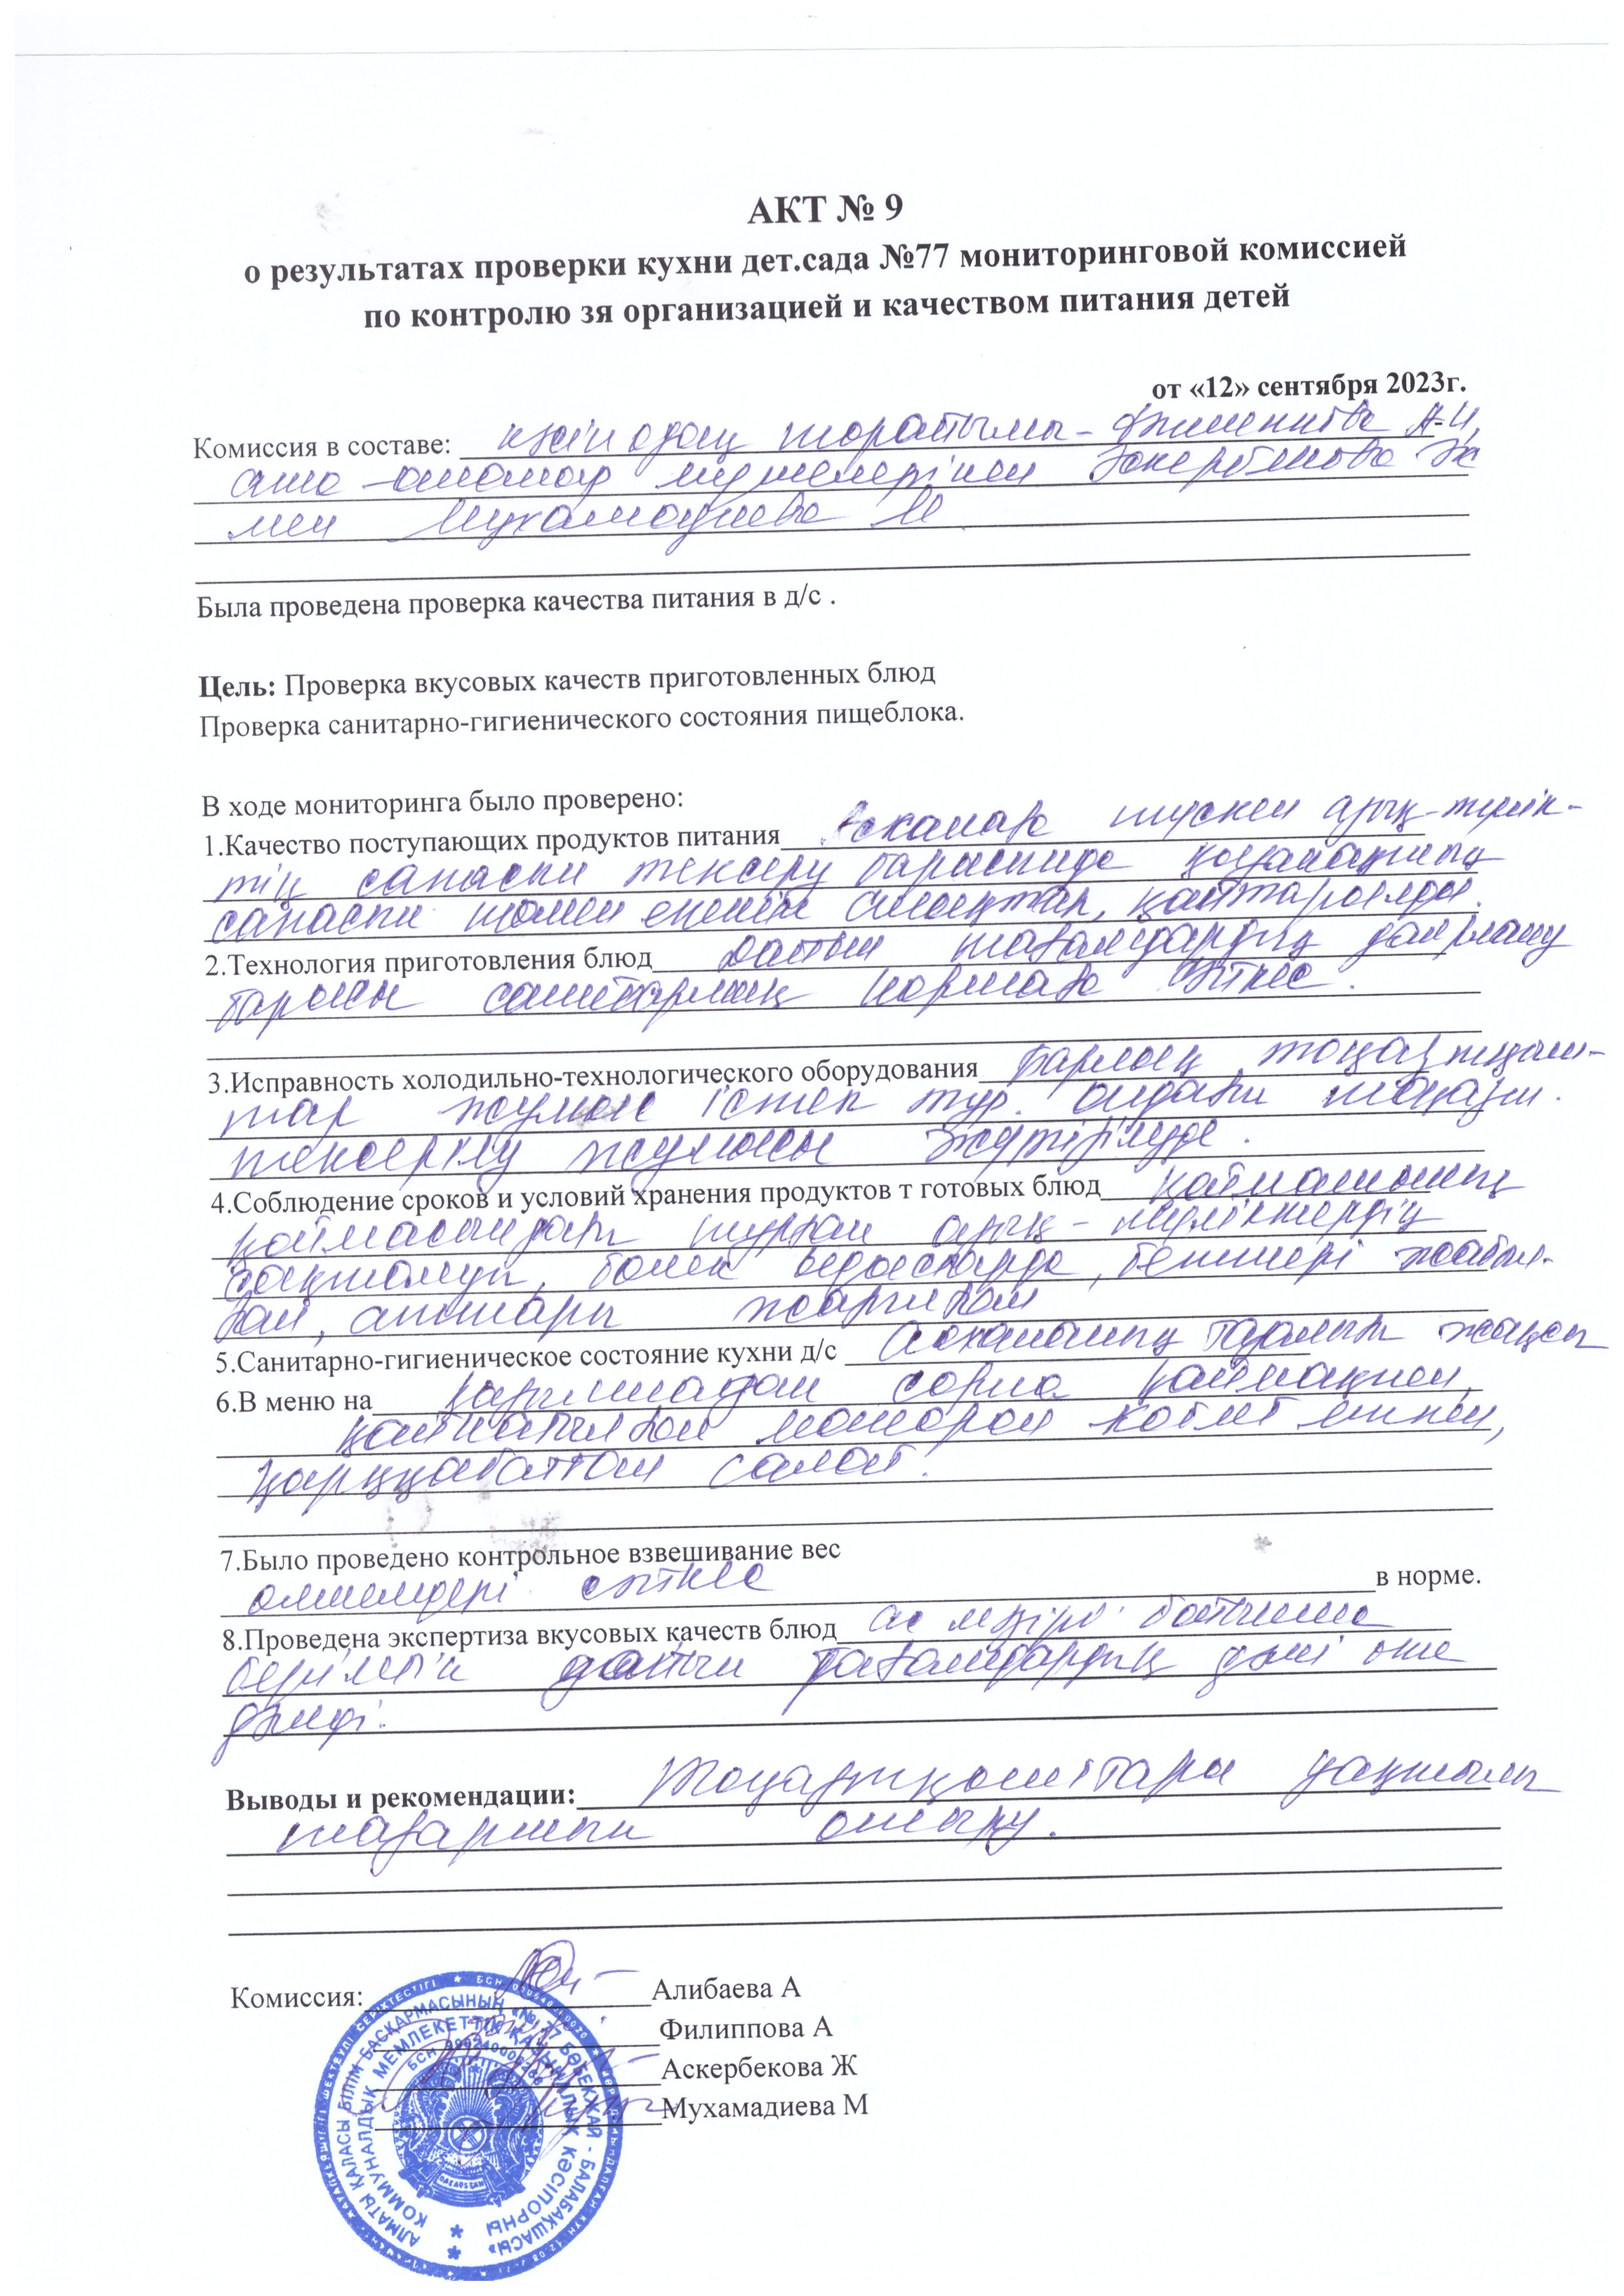 АКТ № 9
о результатах проверки кухни дет.сада №77 мониторинговой комиссией
по контролю зя организацией и качеством питания детей
от «12» сентября 2023г.
Комиссия в составе: кәсіподақ төрайымы-
ата-аналар мүшелерінен Аскербекова Ж
мен Мухамадиева М
Была проведена проверка качества питания в д/с .
Цель: Проверка вкусовых качеств приготовленных блюд
Проверка санитарно-гигиенического состояния пищеблока.
В ходе мониторинга было проверено:
1.Качество поступающих продуктов питания Асханаға түскен азық-түлік-
тің сапасын тексеру барысында
сапасын төмен екенін анықтап, қайтарылды.
2.Технология приготовления блюд Дайын тағамдардың даярлану
барысы санитарлық нормаға сәйкес.
3.Исправность холодильно-технологического оборудования Барлық тоңазытқыш-
тар жұмыс істеп тұр. тоңазыт.
тексерілу жұмысы жүргізілуде.
4.Соблюдение сроков и условий хранения продуктов т готовых блюд
қоймасындағы тұрған азық-түліктердің
сақталуы, бөлек ыдыстарда, беттері жабыл-
ған, аттары жазылған
5.Санитарно-гигиеническое состояние кухни д/с Асхананың тазалығы жақсы
6.В меню на Қарылмадан сорпа қаймақпен,
қайнатылған макарон котлетпен,
қырыққабаттан салат.
7.Было проведено контрольное взвешивание вес
өлшемдері сәйкес в норме.
8.Проведена экспертиза вкусовых качеств блюд ас мәзірі бойынша
берілетін дайын тағамдардың дәмі өте
дәмді.
Выводы и рекомендации: Тоңазытқыштарды уақтылы
тазартып отыру.
Комиссия: Алибаева А
Филиппова А
Аскербекова Ж
Мухамадиева М
АЛМАТЫ ҚАЛАСЫ БІЛІМ БАСҚАРМАСЫНЫҢ «№ 77 БӨБЕКЖАЙ - БАЛАБАҚШАСЫ»
КОММУНАЛДЫҚ МЕМЛЕКЕТТІК ҚАЗЫНАЛЫҚ КӘСІПОРНЫ